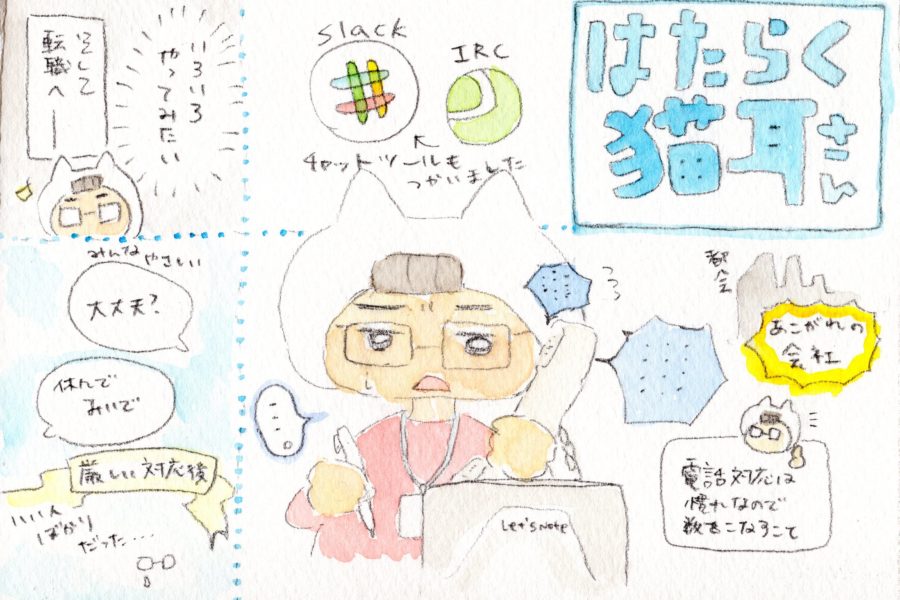 はたらく
猫耳さん
Slack
IRC
チャットツールも
つかいました
いろいろ
やってみたい
そして
転職へ——
都会
あこがれの
会社
電話対応は
慣れなので
数をこなすこて
・・・。
Let'snote
みんなやさしい
大丈夫?
休んで
みいで
厳しい対応後
いい人
ばかり
だった・・・・